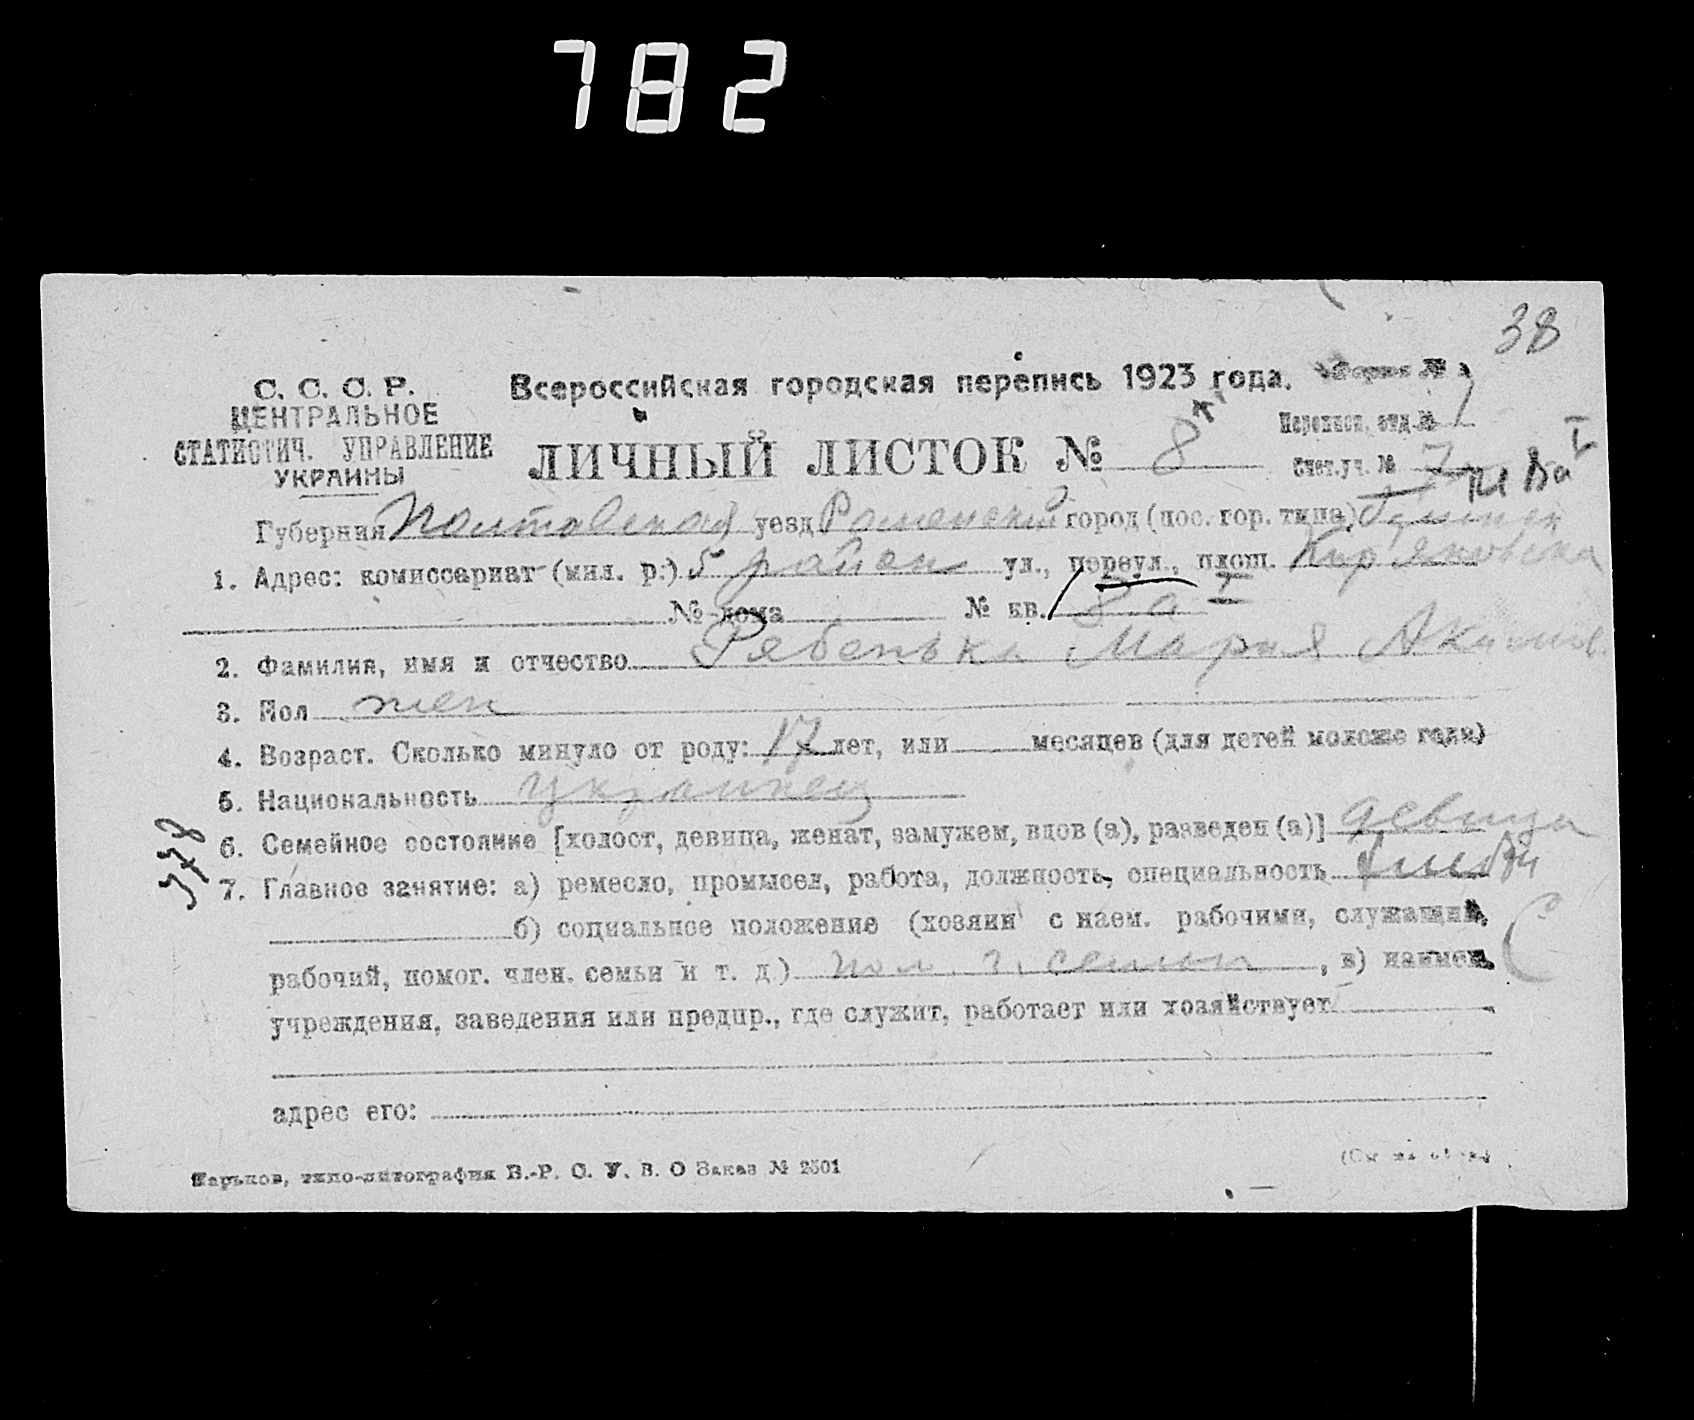 782
38
С. С. С. Р.
ЦЕНТРАЛЬНОЕ
СТАТИСТИЧ. УПРАВЛЕНИЕ
УКРАИНЫ
Всероссийская городская перепись 1923 года.
Форма №
Переписн. отд. № 1
ЛИЧНЫЙ ЛИСТОК № 8
Счет. уч. № 7
Губерния Полтавская уезд Роменский город (пос. гор. типа)
1. Адрес: комиссариат (мил. р.) 5 район ул., переул., площ.
№ дома № кв. 8а
2. Фамилия, имя и отчество Рябенька Мария Акимов.
3. Пол жен
4. Возраст. Сколько минуло от роду: 17 лет, или месяцев (для детей моложе года)
5. Национальность украинец
6. Семейное состояние [холост, девица, женат, замужем, вдов (а), разведен (а)] девица
378
7. Главное занятие: а) ремесло, промысел, работа, должность, специальность
б) социальное положение (хозяин с наем. рабочими, служащий,
рабочий, помог. член. семьи и т. д.) пом. ч. семьи, в) наимен.
учреждения, заведения или предпр., где служит, работает или хозяйствует
адрес его:
Харьков, типо-литография В.-Р. О. У. В. О Заказ № 2501